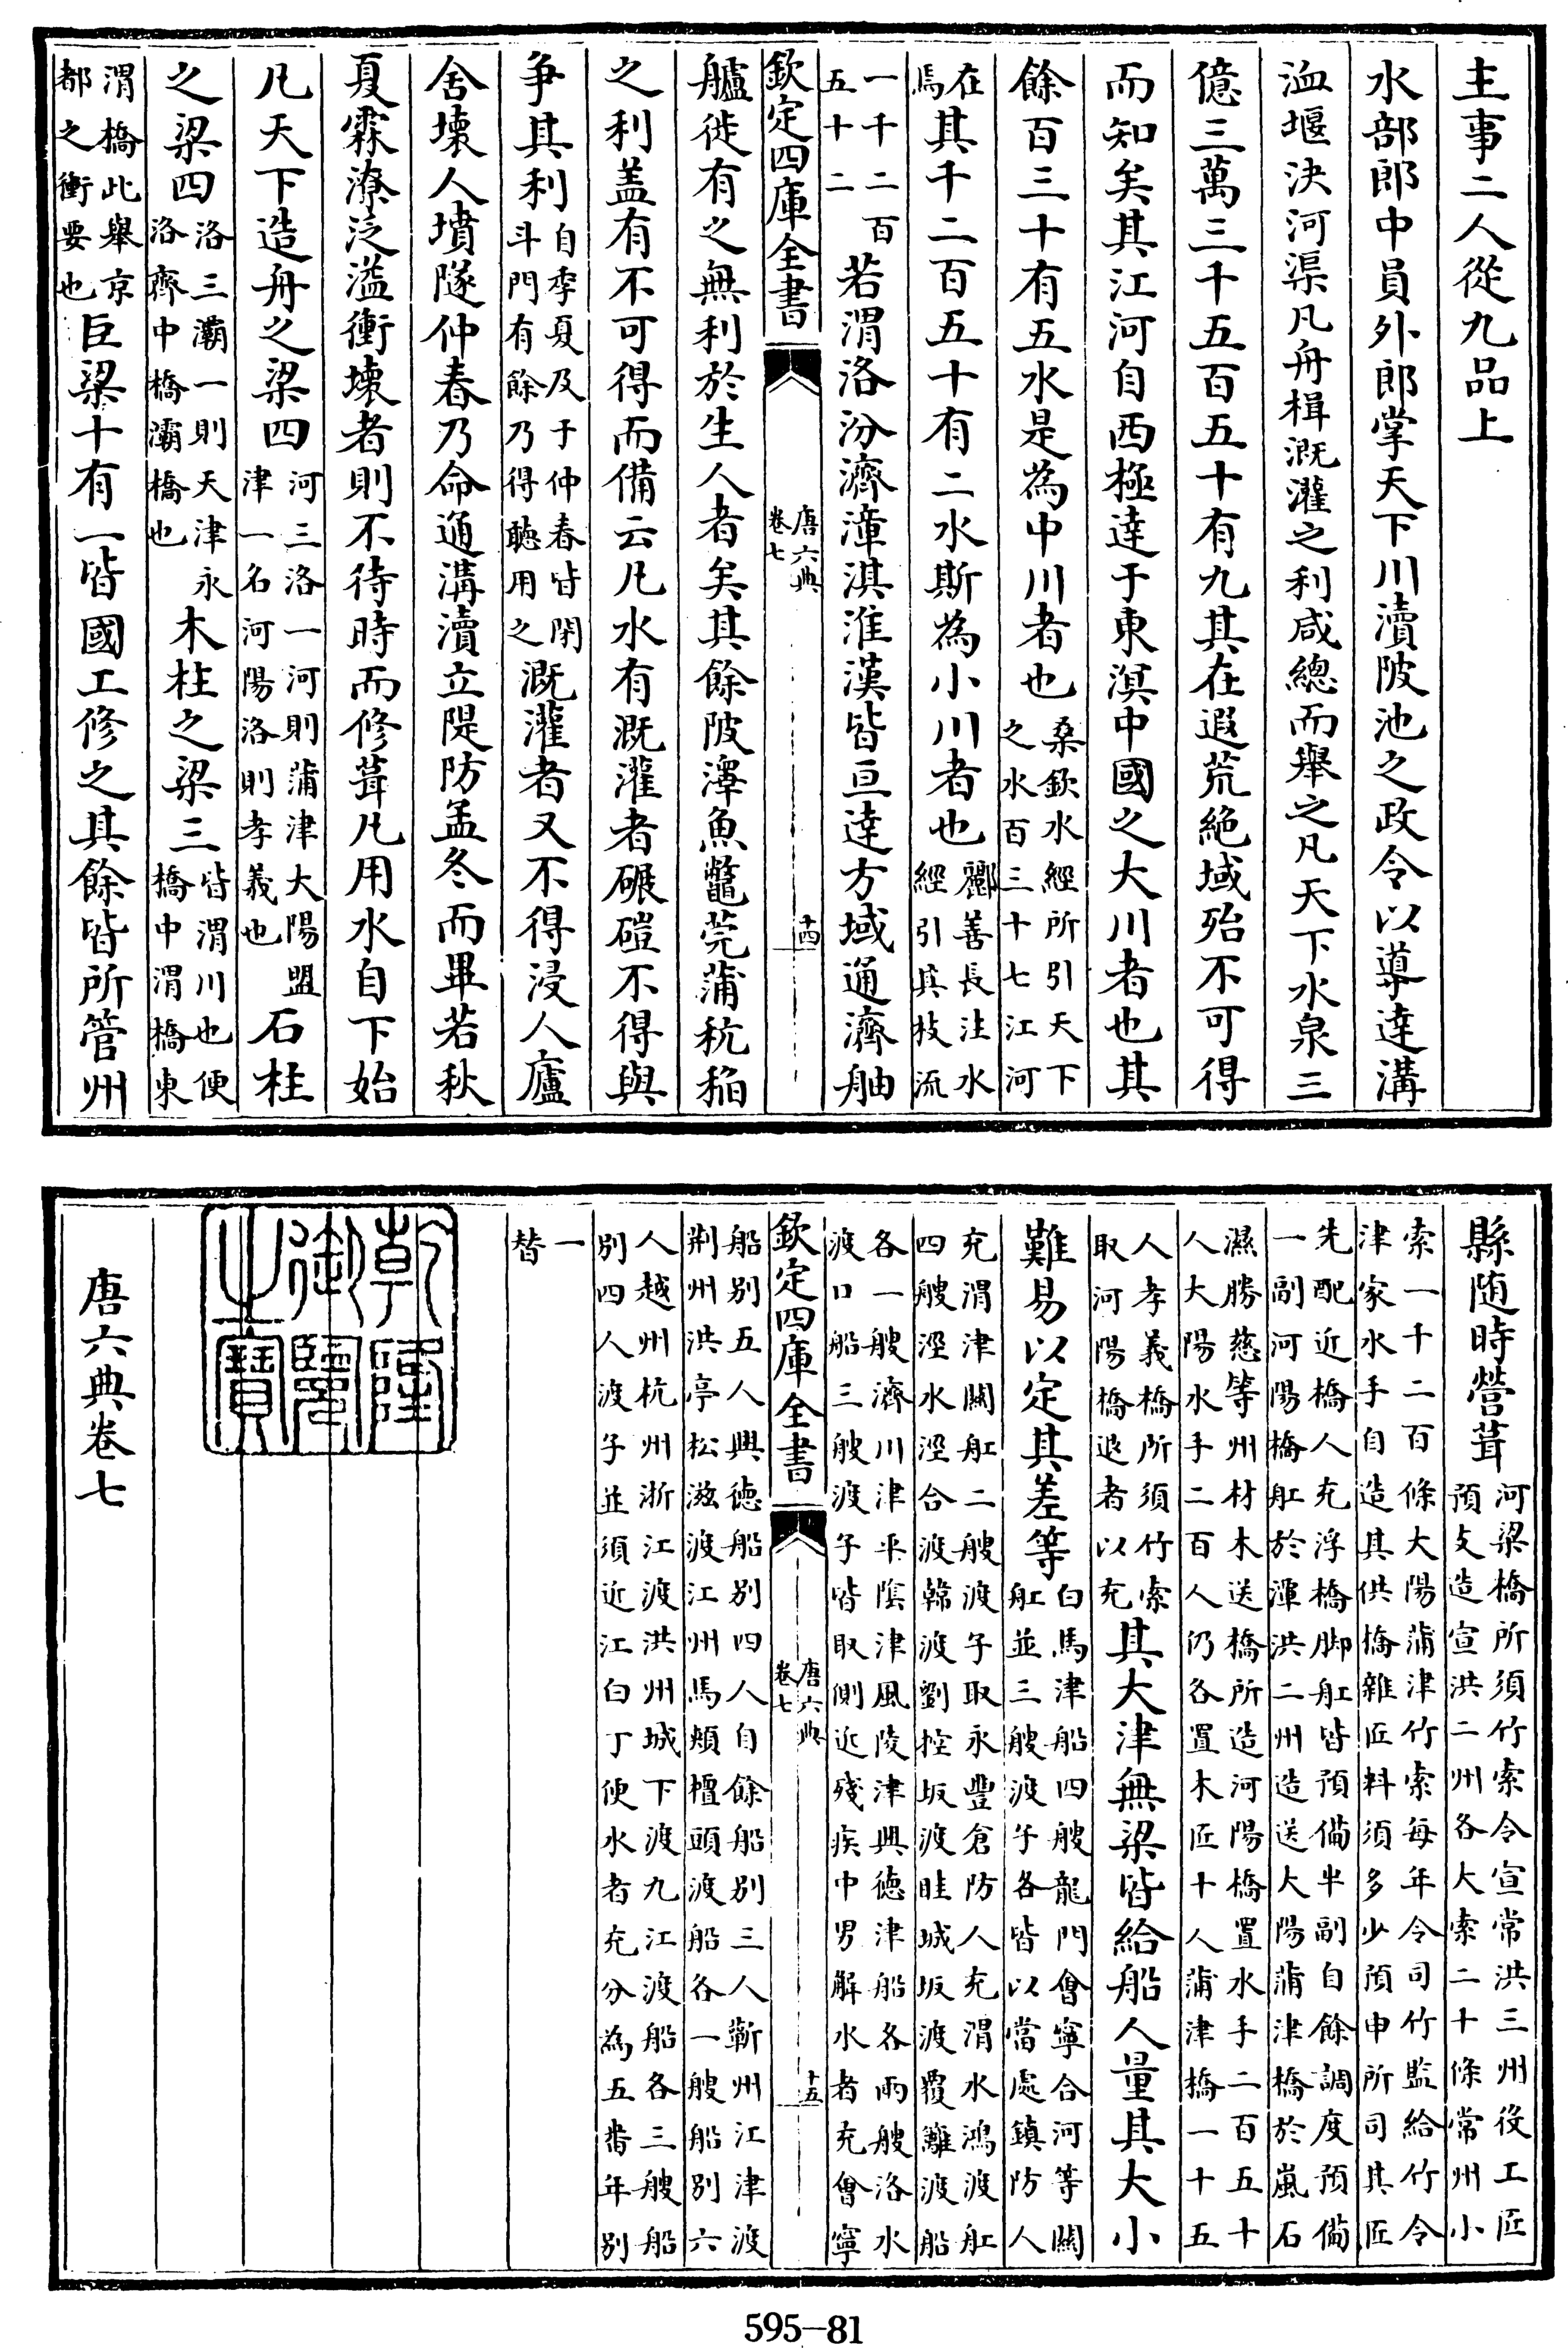 主事二人從九品上
水部郎中員外郎掌天下川瀆陂池之政令以導達溝
洫堰決河渠凡舟楫溉灌之利咸總而舉之凡天下水泉三
億三萬三千五百五十有九其在遐荒絶域殆不可得
而知矣其江河自西極達于東溟中國之大川者也其
餘百三十有五水是為中川者也桑欽水經所引天下
之水百三十七江河
在
焉其千二百五十有二水斯為小川者也酈善長注水
經引其枝流
一千二百
五十二若渭洛汾濟漳淇淮漢皆亘達方域通濟舳
欽定四庫全書
唐六典
卷七
十四
艫徙有之無利於生人者矣其餘陂澤魚鼈莞蒲秔稻
之利盖有不可得而備云凡水有溉灌者碾磑不得與
争其利自季夏及于仲春皆閉
斗門有餘乃得聽用之溉灌者又不得浸人廬
舍壊人墳隧仲春乃命通溝瀆立隄防孟冬而畢若秋
夏霖潦泛溢衝壊者則不待時而修葺凡用水自下始
凡天下造舟之梁四河三洛一河則蒲津大陽盟
津一名河陽洛則孝義也石柱
之梁四洛三灞一則天津永
洛齊中橋灞橋也木柱之梁三皆渭川也便
橋中渭橋東
渭橋此舉京
都之衝要也巨梁十有一皆國工修之其餘皆所管州
縣随時營葺河梁橋所須竹索令宣常洪三州役工匠
預支造宣洪二州各大索二十條常州小
索一千二百條大陽蒲津竹索每年令司竹監給竹令
津家水手自造其供橋雜匠料須多少預申所司其匠
先配近橋人充浮橋脚舡皆預備半副自餘調度預備
一副河陽橋舡於潭洪二州造送大陽蒲津橋於嵐石
濕勝慈等州材木送橋所造河陽橋置水手二百五十
人大陽水手二百人仍各置木匠十人蒲津橋一十五
人孝義橋所須竹索
取河陽橋退者以充其大津無梁皆給船人量其大小
難易以定其差等白馬津船四艘龍門會寧合河等關
舡並三艘渡子各皆以當處鎮防人
充渭津關舡二艘渡子取永豐倉防人充渭水鴻渡舡
四艘涇水涇合渡韓渡劉控坂渡眭城坂渡覆籬渡船
各一艘濟川津平陰津風陵津興德津船各兩艘洛水
渡口船三艘渡子皆取側近殘疾中男解水者充會寧
欽定四庫全書
唐六典
卷七
十五
船别五人興德船别四人自餘船别三人蘄州江津渡
荆州洪亭松滋渡江州馬頰檀頭渡船各一艘船别六
人越州杭州浙江渡洪州城下渡九江渡船各三艘船
别四人渡子並須近江白丁便水者充分為五番年别
一
替
乾隆
御覽
之寶
唐六典卷七
595—81